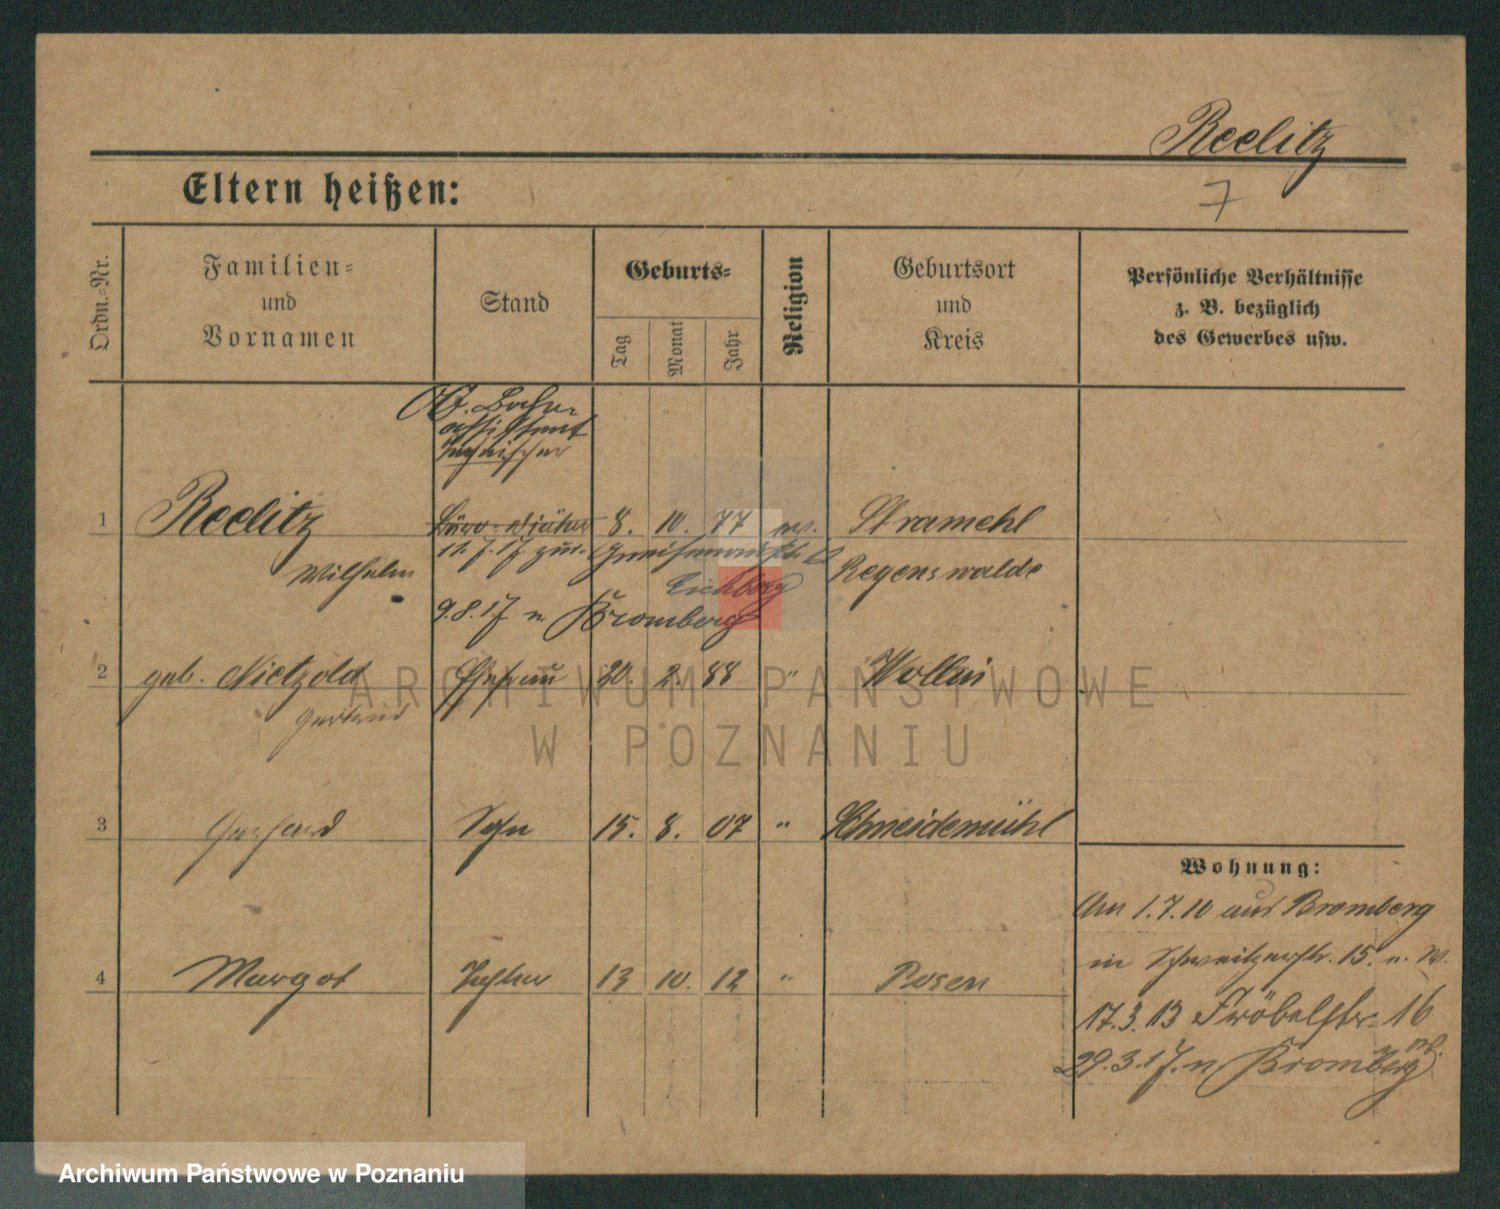 Reelitz
7
Eltern heißen:
Ordn.-Nr.
Familien-
und
Vornamen
Stand
Geburts-
Tag
Monat
Jahr
Religion
Geburtsort
und
Kreis
Persönliche Verhältnisse
z. B. bezüglich
des Gewerbes usw.
Bahn-
assistent
technischer
1 Reelitz Büro-Diätar 8. 10. 77 ev. Stramehl
Wilhelm 11. 7. 17 zur. Gneisenaustr. Regenswalde
Eichberg
9.8.17 n. Bromberg
2 geb. Nietzold Ehefrau 20. 2. 88 " Wollin
Gertrud
3 Gerhard Sohn 15. 8. 07 " Schneidemühl
4 Margot Tochter 13 10. 12 " Posen
Wohnung:
Am 1.7.10 aus Bromberg
in Schweitzerstr. 15. n. W.
17.3.13 Fröbelstr. 16
29.3.17. n Bromberg
ARCHIWUM PAŃSTWOWE
W POZNANIU
Archiwum Państwowe w Poznaniu